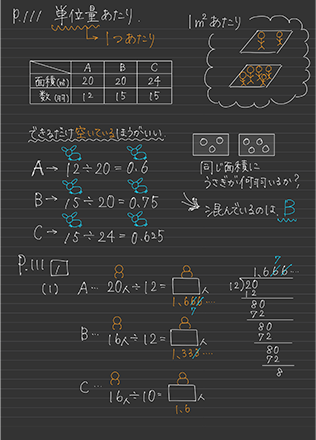 P.111 単位量あたり.
→ 1つあたり
1m²あたり
A B C
面積(㎡) 20 20 24
数(羽) 12 15 15
できるだけ空いているほうがいい.
A → 12÷20=0.6
B → 15÷20=0.75
C → 15÷24=0.625
同じ面積に
うさぎが何羽いるか?
→ 混んでいるのは, B
P.111 1
(1) A… 20人÷12= 人
1.666…
7
B… 16人÷12= 人
1.333…
C… 16人÷10= 人
1.6
7
1.666
12)20
12
80
72
80
72
80
72
8